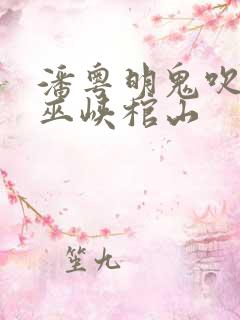 潘粤明鬼吹
巫峡棺山
笙九